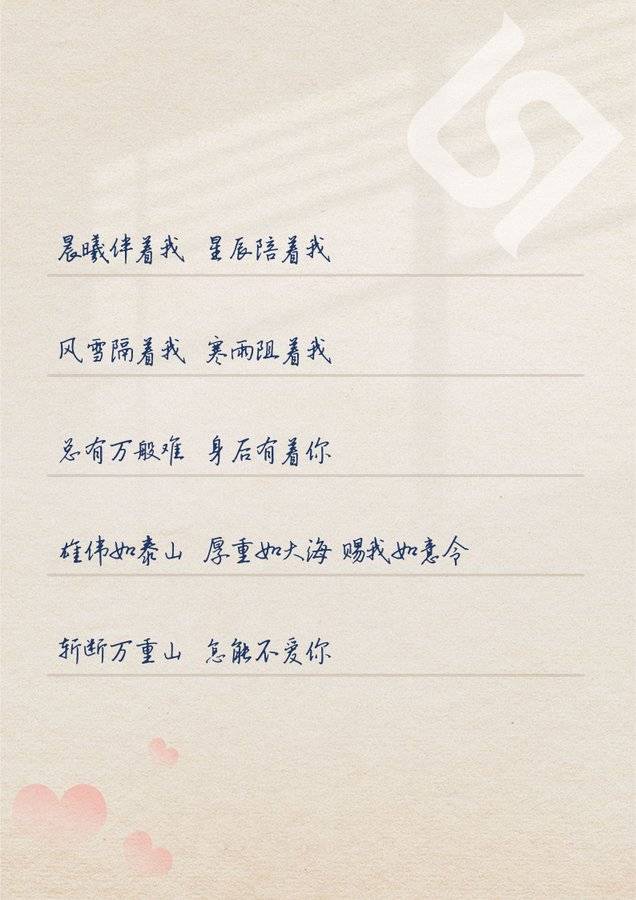 晨曦伴着我 星辰陪着我
风雪隔着我 寒雨阻着我
总有万般难 身后有着你
雄伟如泰山 厚重如大海 赐我如意令
斩断万重山 怎能不爱你